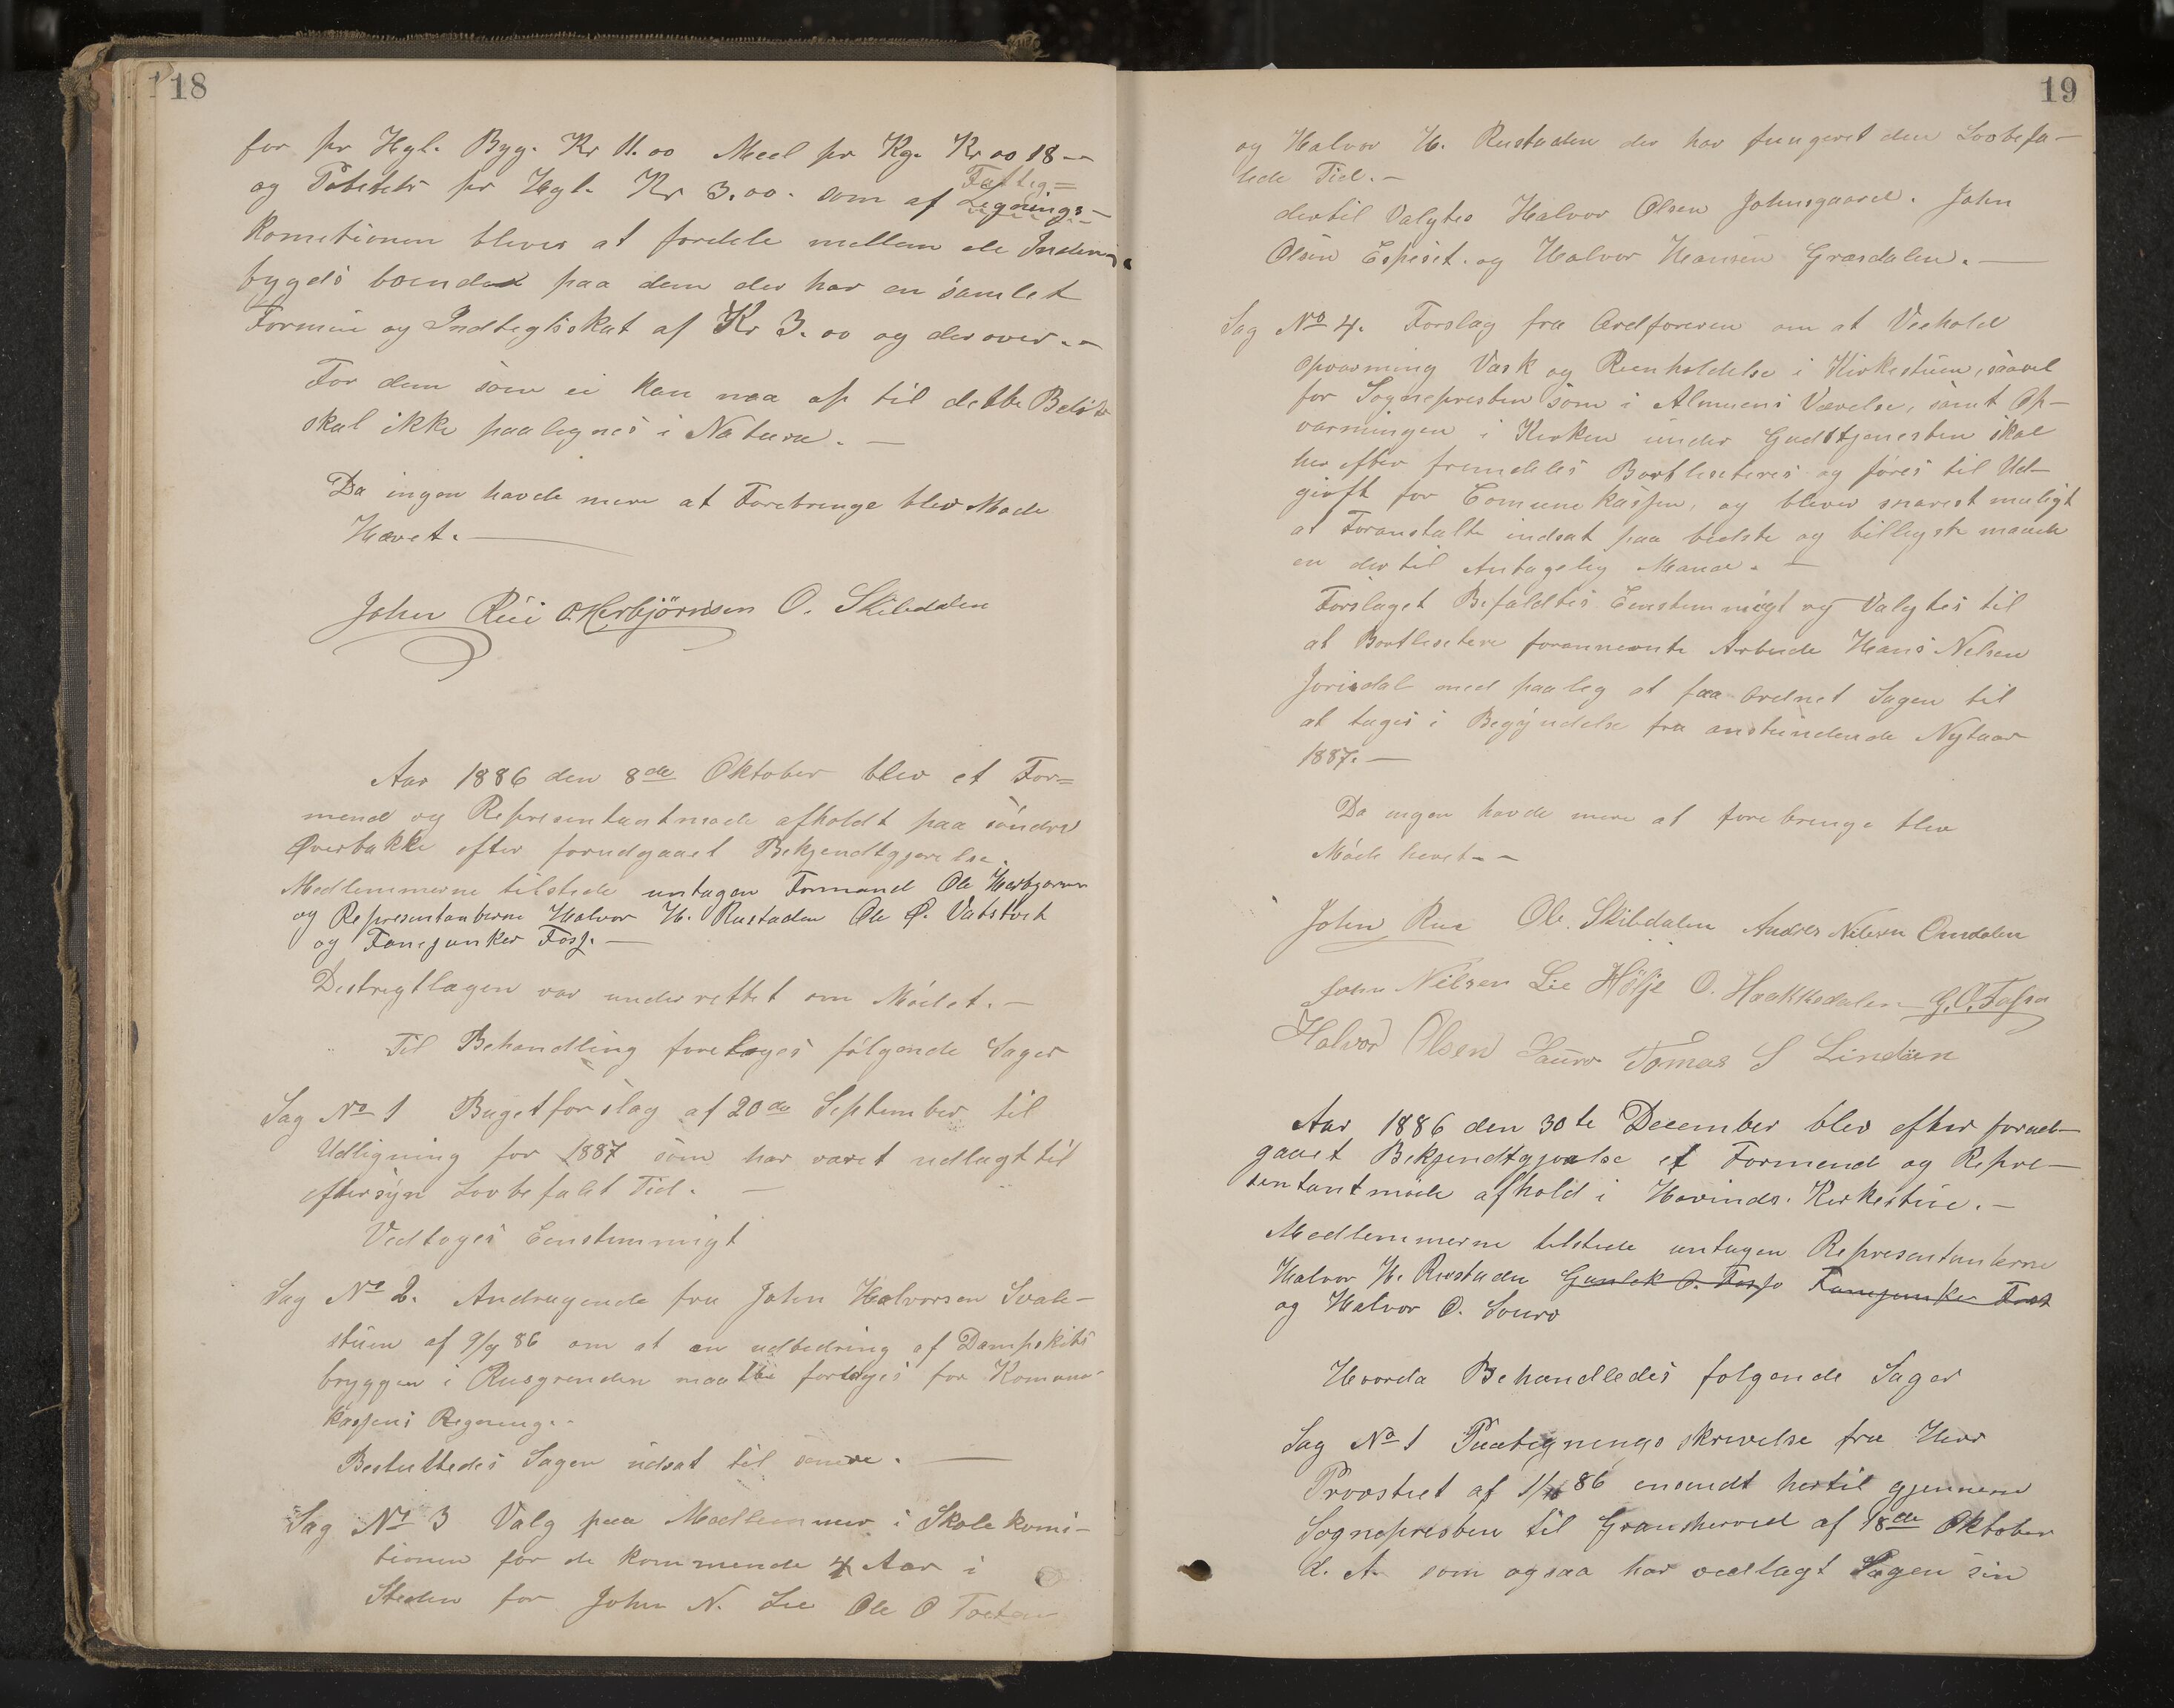 18
for pr Hgl. Byg. Kr 11.00 Meel pr Kg. Kr 00 18 —
og Potetes pr Hgl. Kr 3.00. som af Fattig=
Legnings-
Komitionen blives at fordele mellem de Inden
bygds boende paa dem der har en samlet
Formue og Indtegtsskat af Kr 3.00 og derover. —
For dem som ei kan naa op til dette Belöb
skal ikke paalegnes i Natura. —
Da ingen havde mere at Forebringe blev Mode
Hævet. —
John Rui O. Herbjörnsen O. Skibdalen
Aar 1886 den 8de Oktober blev et For=
mend og Representantmøde afholdt paa söndre
Øverbakke efter forudgaaet Bekjendtgjørelse.
Medlemmerne tilstede untagen Formand Ole Herbjørnsen
og Representanterne Halvor H. Rustaden Ole O. Vatstvet
og Fanejunker Fosj. —
Destrigtlagen var underrettet om Mödet. —
Til Behandling foretoges fölgende Sager
Sag No 1 Bugetforslag af 20de September til
Udligning for 1887 som har været udlagt til
eftersyn Lovbefalet Tid. —
Vedtoges Eenstemmigt
Sag No 2. Andragende fra John Halvorsen Svale-
stuen af 9/9 86 om at en udbedring af Dampskibs
bryggen i Rusgrenden maatte fortages for Komune
kassens Regning. -
Besluttedes Sagen udsat til senere. —
Sag No 3 Valg paa Medlemmer i Skole komi-
tionen for de kommende 4 Aar i
Steden for John N. Lie Ole O
19
og Halvor H. Rustaden der har fungeret den Lovbefa-
lede Tid. —
dertil Valgtes Halvor Olsen Johnsgaard. John
Olsen Espeset. og Halvor Hansen Grasdalen. —
Sag No 4. Forslag fra Ordføreren om at Veehold
Opvarming Vask og Reenholdelse i Kirkestuen, saavel
for Sognepresten som i Almuens Værelse, samt Op-
varmingen i Kirken under Gudstjenesten skal
her efter fremdeles Bortliciteres og føres til Ud-
gift for Comunekassen, og bliver snarest muligt
at Foranstalte indsat paa bedste og billigste maade
en der til Antagelig Mand. —
Forslaget Befaldtes Eenstemmigt og Valgtes til
at Bortlicitere forannevnte Arbeide Hans Nelsen
Jorisdal med paaleg at faa Ordnet Sagen til
at tages i Begyndelse fra anstundende Nytaar
1887. —
Da ingen havde mere at forebringe blev
Möde hevet. —
John Rui Ole Skibdalen Anders Nilsen Omdalen
John Nilsen Lie Hölje O. Haakkedalen G. O. Fosso
Halvor Olsen Saure Tomas S Lindaen
Aar 1886 den 30te December blev efter forud-
gaaet Bekjendtgjørelse et Formend og Repre-
sentantmøde afhold i Hovinds. Kirkestue. —
Medlemmerne tilstede untagen Representanterne
Halvor H. Rustaden Gunlek O. Fosso Fanejunker Fosj
og Halvor O. Souro
Hvorda Behandledes folgende Sager
Sag No 1 Paategnings skrivelse fra Herr
Provstiet af 86 ensendt hertil gjennem
Sognepresten til Gransherred af 18de Oktober
d. A. som ogsaa har vedlagt Sagen sin